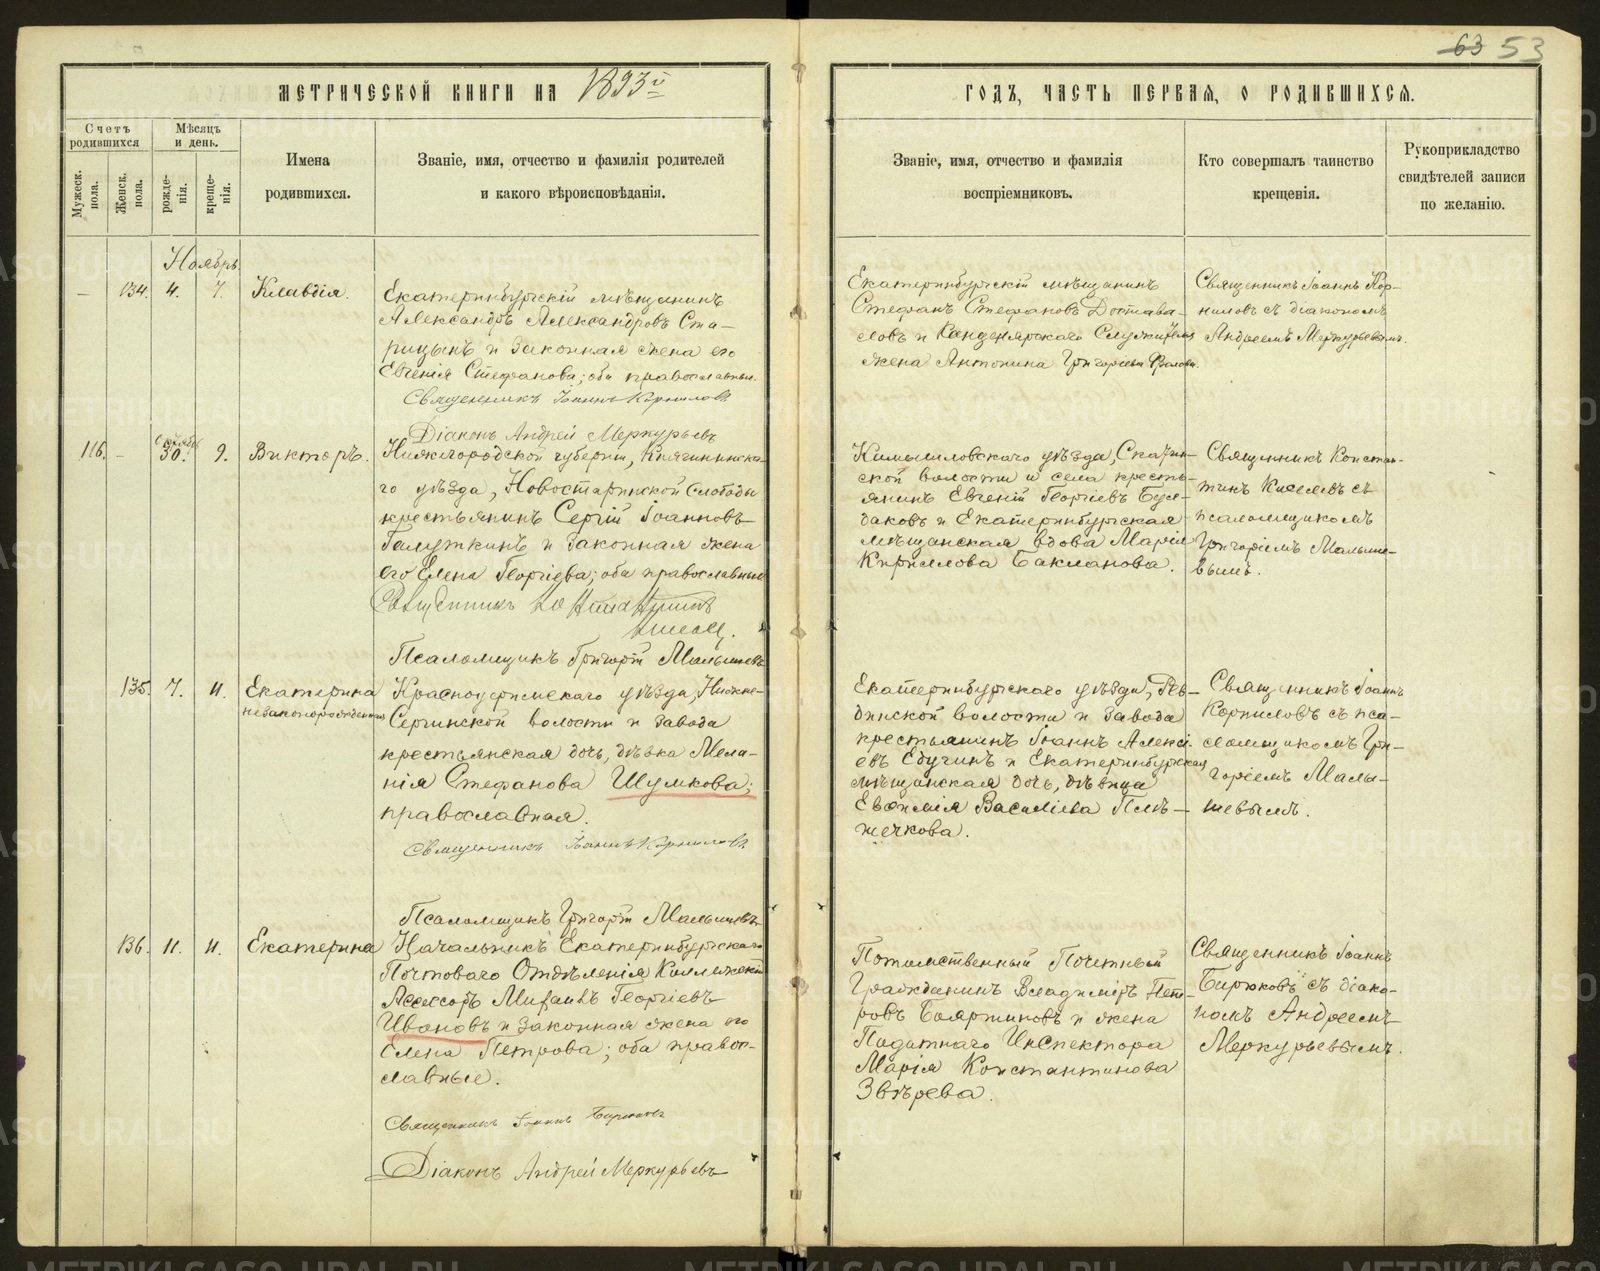 63 53
МЕТРИЧЕСКОЙ КНИГИ НА 1893й
Счетъ родившихся
Мѣсяцъ и день.
Мужеск. пола.
Женск. пола.
рожденія.
крещенія.
Имена
родившихся.
Званіе, имя, отчество и фамилія родителей
и какого вѣроисповѣданія.
Ноябрь
— 134. 4. 7. Клавдія.
Екатеринбургскій мѣщанинъ
Александръ Александровъ Ста—
рицынъ и законная жена его
Евгенія Стефанова; оба православные.
Священникъ Іоаннъ Корниловъ
Діаконъ Андрей Меркурьевъ
116. — Октября 30. 9. Викторъ.
Нижегородской губерніи, Княгининска—
го уѣзда, Новостаринской Слободы
крестьянинъ Сергій Іоанновъ
Галуткинъ и законная жена
его Елена Георгіева; оба православные
Священникъ Константинъ
Псаломщикъ Григорій Малышевъ
135. 7. 11. Екатерина
незаконорожденная
Красноуфимскаго уѣзда, Нижне—
Сергинской волости и завода
крестьянская дочь, дѣвка Мела—
нія Стефанова Шумкова;
православная.
Священникъ Іоаннъ Корниловъ
Псаломщикъ Григорій Малышевъ
136. 11. 11. Екатерина
Начальникъ Екатеринбургскаго
Почтоваго Отдѣленія Коллежскій
Асессоръ Михаилъ Георгіевъ
Ивановъ и законная жена его
Елена Петрова; оба право—
славные.
Священникъ Іоаннъ Бирюковъ
Діаконъ Андрей Меркурьевъ
ГОДЪ, ЧАСТЬ ПЕРВАЯ, О РОДИВШИХСЯ.
Званіе, имя, отчество и фамилія
воспріемниковъ.
Кто совершалъ таинство
крещенія.
Рукоприкладство
свидѣтелей записи
по желанію.
Екатеринбургскій мѣщанинъ
Стефанъ Стефановъ Достава—
ловъ и Канцелярскаго Служителя
жена Антонина Григорьева Фролова.
Священникъ Іоаннъ Кор—
ниловъ съ діакономъ
Андреемъ Меркурьевымъ.
Камышловскаго уѣзда, Скатин—
ской волости и села кресть—
янинъ Евгеній Георгіевъ Бул—
даковъ и Екатеринбургская
мѣщанская вдова Марія
Кириллова Бакланова.
Священникъ Констан—
тинъ Киселевъ съ
псаломщикомъ
Григоріемъ Малыше—
вымъ.
Екатеринбургскаго уѣзда, Рев—
динской волости и завода
крестьянинъ Іоаннъ Алексі—
евъ и Екатеринбургская
мѣщанская дочь, дѣвица
Евфимія Василіева Плѣ—
шечкова.
Священникъ Іоаннъ
Корниловъ съ пса—
ломщикомъ Гри—
горіемъ Малы—
шевымъ.
Потомственный Почетный
Гражданинъ Владиміръ Пет—
ровъ Бояршиновъ и жена
Податнаго Инспектора
Марія Константинова
Звѣрева.
Священникъ Іоаннъ
Бирюковъ съ діако—
номъ Андреемъ
Меркурьевымъ.
METRIKI.GASO-URAL.RU